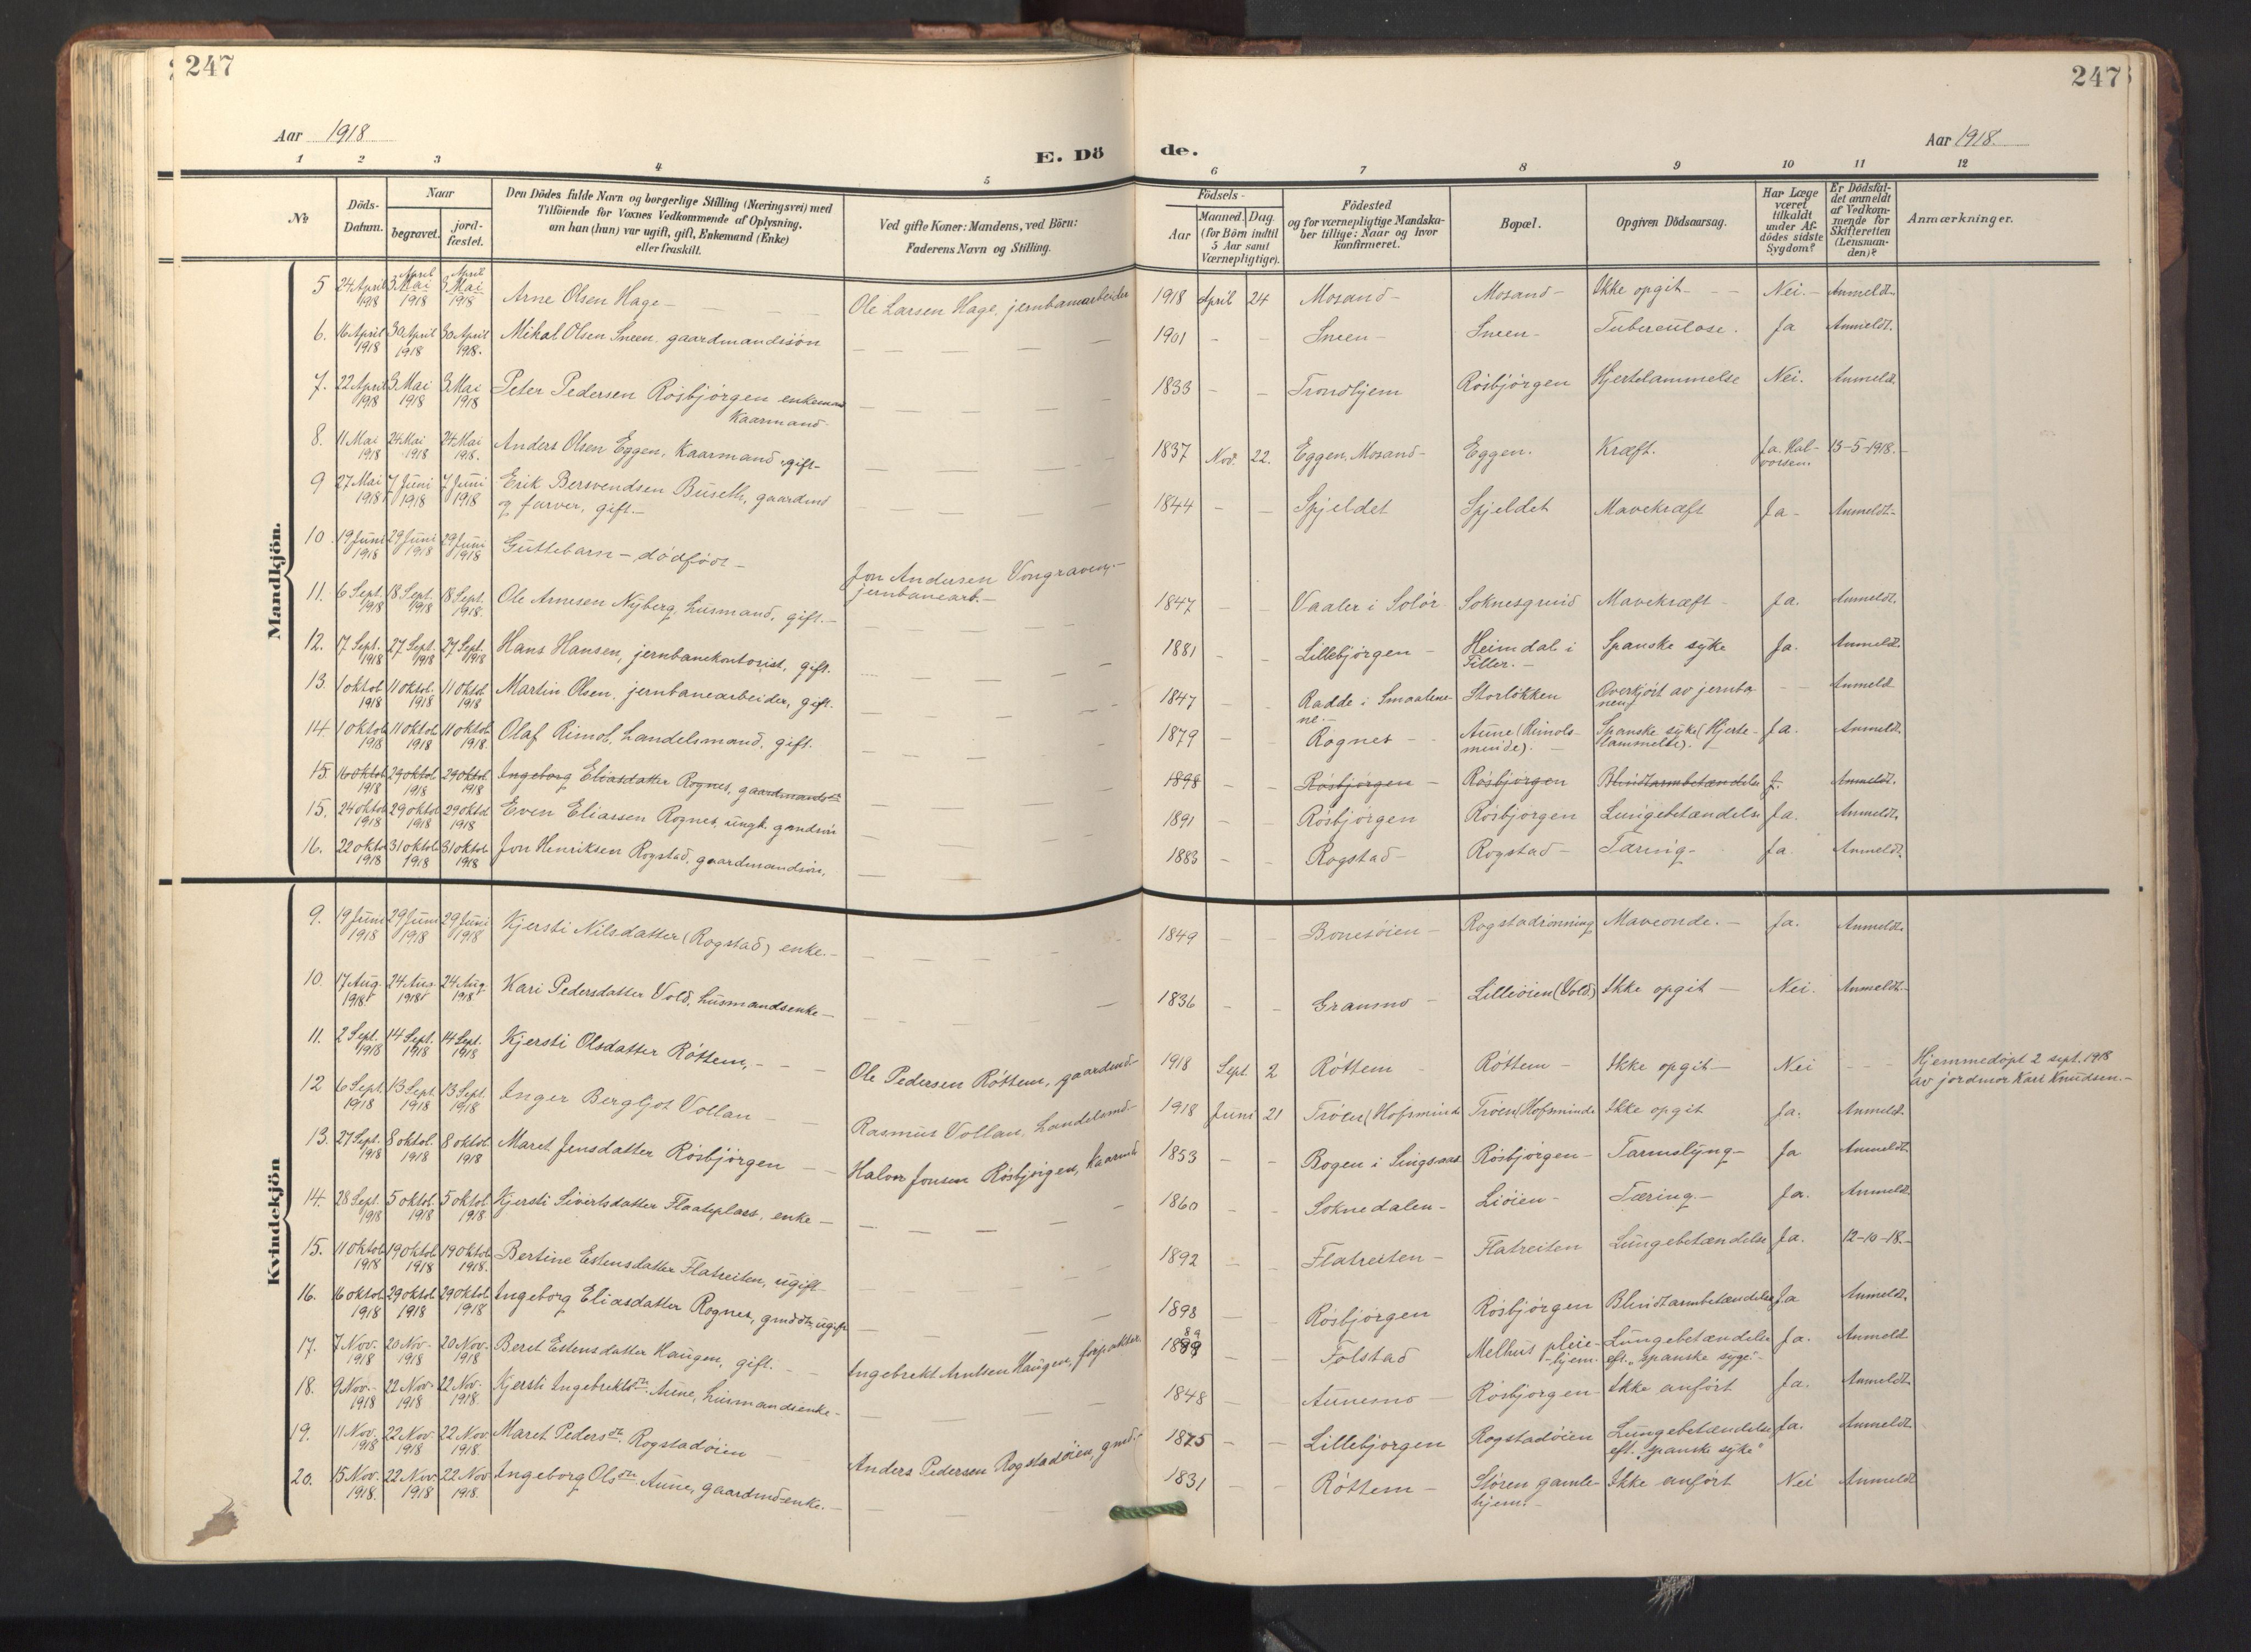 247
247
Aar 1918
E. Dö
de.
Aar 1918.
1 2 3 4 5 6 7 8 9 10 11 12
No
Döds-
Datum.
Naar
begravet.
jord-
fæstet.
Den Dödes fulde Navn og borgerlige Stilling (Næringsvei) med
Tilföiende for Voxnes Vedkommende af Oplysning,
om han (hun) var ugift, gift, Enkemand (Enke)
eller fraskilt.
Ved gifte Koner: Mandens, ved Börn:
Faderens Navn og Stilling.
Födsels-
Aar
Maaned. Dag.
(for Börn indtil
5 Aar samt
Værnepligtige).
Födested
og for værnepligtige Mandska-
ber tillige: Naar og hvor
konfirmeret.
Bopæl.
Opgiven Dödsaarsag.
Har Læge
været
tilkaldt
under Af-
dödes sidste
Sygdom?
Er Dödsfal-
det anmeldt
af Vedkom-
mende for
Skifteretten
(Lensman-
den)?
Anmærkninger.
Mandkjön.
5 24 April 1918 3 Mai April 1918 3 Mai April 1918 Arne Olsen Hage – Ole Larsen Hage, jernbanearbeider 1918 April 24 Mosand – Mosand – Ikke opgit – Nei. – Anmeldt.
6. 16 April 1918 30 April 1918 30 April 1918. Mikal Olsen Sneen, gaardmandssön 1901 – – Sneen – Sneen – Tuberculose. Ja Anmeldt.
7. 22 April 1918 3 Mai 1918 3 Mai 1918 Peter Pedersen Rösbjörgen enkemand
Kaarmand – 1833 – – Trondhjem Rösbjörgen Hjertelammelse Nei. Anmeldt.
8. 11 Mai 1918 24 Mai 1918 24 Mai 1918. Anders Olsen Eggen, Kaarmand, gift – 1837 Nov. 22. Eggen, Mosand – Eggen. Kræft. Ja. Hal-
vorsen. 13-5-1918. –
9 27 Mai 1918 7 Juni 1918 7 Juni 1918 Erik Bersvendsen Buseth, gaardmd
og farver, gift. – 1844 – – Spjeldet Spjeldet Mavekræft Ja – Anmeldt –
10 19 Juni 1918 29 Juni 1918 29 Juni 1918 Guttebarn – dödfödt – Jon Andersen Vongraven, –
jernbanearb. –
11. 6 Sept. 1918 18 Sept. 1918 18 Sept. 1918. Ole Arnesen Nyberg, husmand, gift. – 1847 – – Vaaler i Solör Soknesgrind Mavekræft – Ja. Anmeldt.
12. 17 Sept. 1918 27 Sept. 1918 27 Sept. 1918 Hans Hansen, jernbanekontorist, gift. 1881 – – Lillebjörgen – Heimdal i
Tiller. – Spanske syke Ja. Anmeldt.
13. 1 oktob 1918 11 oktob. 1918 11 oktob 1918 Martin Olsen, jernbanearbeider, gift. 1847 – – Radde i Smaalene-
ne. – Storlökken Overkjört av jernba
nen – – Anmeldt
14. 1 oktob 1918 11 oktob 1918 11 oktob 1918. Olaf Rimol, handelsmand, gift. 1879 – – Rognes – Aune (Rimols-
minde). – Spanske syke (Hjerte-
lammelse). – Ja. Anmeldt.
15. 16 oktob 1918 29 oktob 1918 29 oktob. 1918 Ingeborg Eliasdatter Rognes, gaardmandsdtr 1898 – – Rösbjörgen – Rösbjörgen Blindtarmbetændelse J. Anmeldt.
15. 24 oktob 1918 29 oktob 1918 29 oktob 1918 Even Eliassen Rognes, ungk. gmdsön 1891 – – Rösbjörgen Rösbjörgen Lungebetændelse Ja. Anmeldt.
16. 22 oktob 1918 31 oktob 1918 31 oktob. 1918 Jon Henriksen Rogstad, gaardmandsön, 1883 – – Rogstad – Rogstad – Tæring – Ja. Anmeldt.
Kvindekjön
9. 19 Juni 1918 29 Juni 1918 29 Juni 1918 Kjersti Nilsdatter (Rogstad) enke. – 1849 – – Bonesöien – Rogstadrönning Maveonde. – Ja. Anmeldt.
10. 17 Aug. 1918 24 Aug 1918 24 Aug. 1918 Kari Pedersdatter Vold, husmandsenke – 1836 – – Gransmo – Lilleöien (Vold) Ikke opgit – Nei. Anmeldt. –
11. 2 Sept. 1918 14 Sept. 1918 14 Sept. 1918 Kjersti Olsdatter Röttem, – Ole Pedersen Röttem, gaardmd. – 1918 Sept 2 Röttem – Röttem – Ikke opgit – Nei – – – Hjemmedöpt 2 sept. 1918
av jordmor Kari Knudsen. –
12 6 Sept. 1918 13 Sept. 1918 13 Sept. 1918 Inger Bergljot Vollan – Rasmus Vollan, handelsmd. – 1918 Juni 21 Tröen (Hofsminde Tröen (Hofsminde Ikke opgit Ja. Anmeldt.
13. 27 Sept. 1918 8 oktob. 1918 8 oktob 1918 Maret Jensdatter Rösbjörgen – – Halvor Jonsen Rösbjörgen, kaarmd 1853 – – Bogen i Singsaas Rösbjörgen – Tarmslyng – Ja Anmeldt.
14. 28 Sept. 1918 5 oktob. 1918 5 oktob. 1918. Kjersti Sivertsdatter Flaataplass, enke – 1860 – – Soknedalen – Liöien – Tæring – Ja. Anmeldt.
15. 11 oktob 1918 19 oktob. 1918 19 oktob. 1918. Bertine Estensdatter Flatreiten, ugift 1892 – – Flatreiten – Flatreiten Lungebetændelse Ja. 12-10-18. –
16. 16 oktob 1918 29 oktob 1918 29 oktob. 1918 Ingeborg Eliasdatter Rognes, gmddtr, ugift 1898 Rösbjörgen Rösbjörgen Blindtarmbetændelse Ja Anmeldt.
17. 7 Nov. – 1918 20 Nov. – 1918 20 Nov. – 1918 Beret Estensdatter Haugen, gift. – – Ingebrekt Arntsen Haugen, forpakter. 1889 – – Folstad Melhus pleie-
-hjem. Lungebetændelse
eft. „spanske syge". Ja. Anmeldt
18. 9 Nov. – 1918 22 Nov. 1918 22 Nov. – 1918. Kjersti Ingebrektsdtr. Aune, husmandsenke – 1848 – – Aunesmo – Rösbjörgen – Ikke anfört Ja. Anmeldt.
19. 11 Nov. 1918 22 Nov 1918 22 Nov 1918. Maret Pedersdtr. Rogstadöien – Anders Pedersen Rogstadöien, gmd. – 1875 – – Lillebjörgen Rogstadöien Lungebetændelse
eft. „spanske syke" Ja. Anmeldt.
20. 15 Nov. 1918. 22 Nov 1918 22 Nov 1918. Ingeborg Olsdtr. Aune, gaardmdsenke. – 1831 – – Röttem – Stören gamle-
hjem. – Ikke anfört Nei Anmeldt